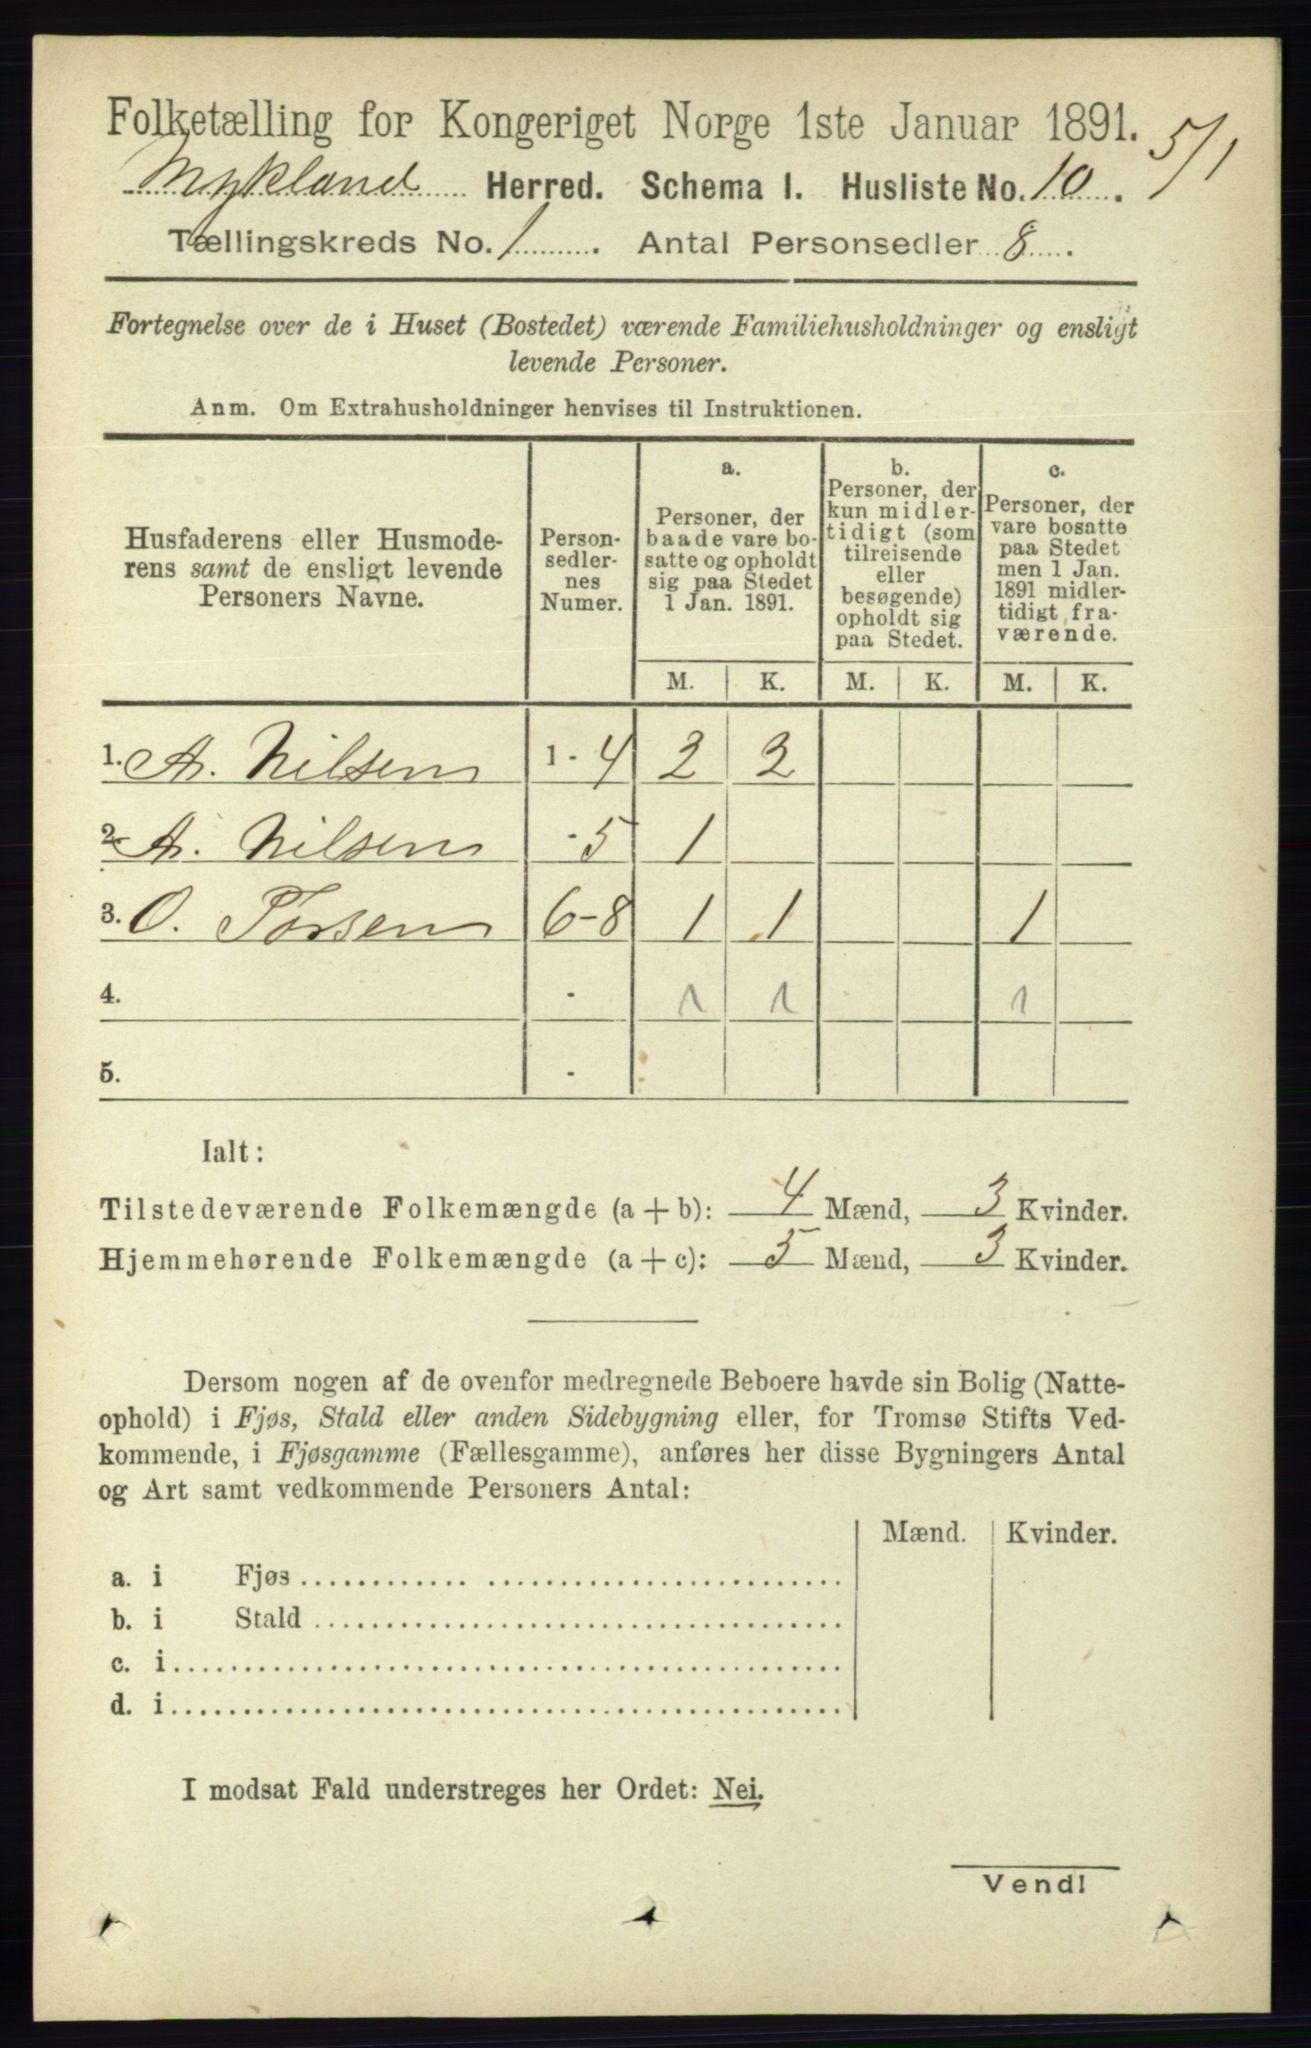 Folketælling for Kongeriget Norge 1ste Januar 1891.
5/1
Mykland Herred. Schema I. Husliste No. 10.
Tællingskreds No. 1. Antal Personsedler 8.
Fortegnelse over de i Huset (Bostedet) værende Familiehusholdninger og ensligt
levende Personer.
Anm. Om Extrahusholdninger henvises til Instruktionen.
Husfaderens eller Husmode-
rens samt de ensligt levende
Personers Navne.
Person-
sedler-
nes
Numer.
a.
Personer, der
baade vare bo-
satte og opholdt
sig paa Stedet
1 Jan. 1891.
b.
Personer, der
kun midler-
tidigt (som
tilreisende
eller
besøgende)
opholdt sig
paa Stedet.
c.
Personer, der
vare bosatte
paa Stedet
men 1 Jan.
1891 midler-
tidigt fra-
værende.
M. K. M. K. M. K.
1. A. Nilsen 1 - 4 2 2
2. A. Nilsen - 5 1
3. O. Torsen 6-8 1 1 1
4. - 1 1 1
5. -
Ialt:
Tilstedeværende Folkemængde (a + b): 4 Mænd, 3 Kvinder.
Hjemmehørende Folkemængde (a + c): 5 Mænd, 3 Kvinder.
Dersom nogen af de ovenfor medregnede Beboere havde sin Bolig (Natte-
ophold) i Fjøs, Stald eller anden Sidebygning eller, for Tromsø Stifts Ved-
kommende, i Fjøsgamme (Fællesgamme), anføres her disse Bygningers Antal
og Art samt vedkommende Personers Antal:
Mænd. Kvinder.
a. i Fjøs
b. i Stald
c. i
d. i
I modsat Fald understreges her Ordet: Nei.
Vend!